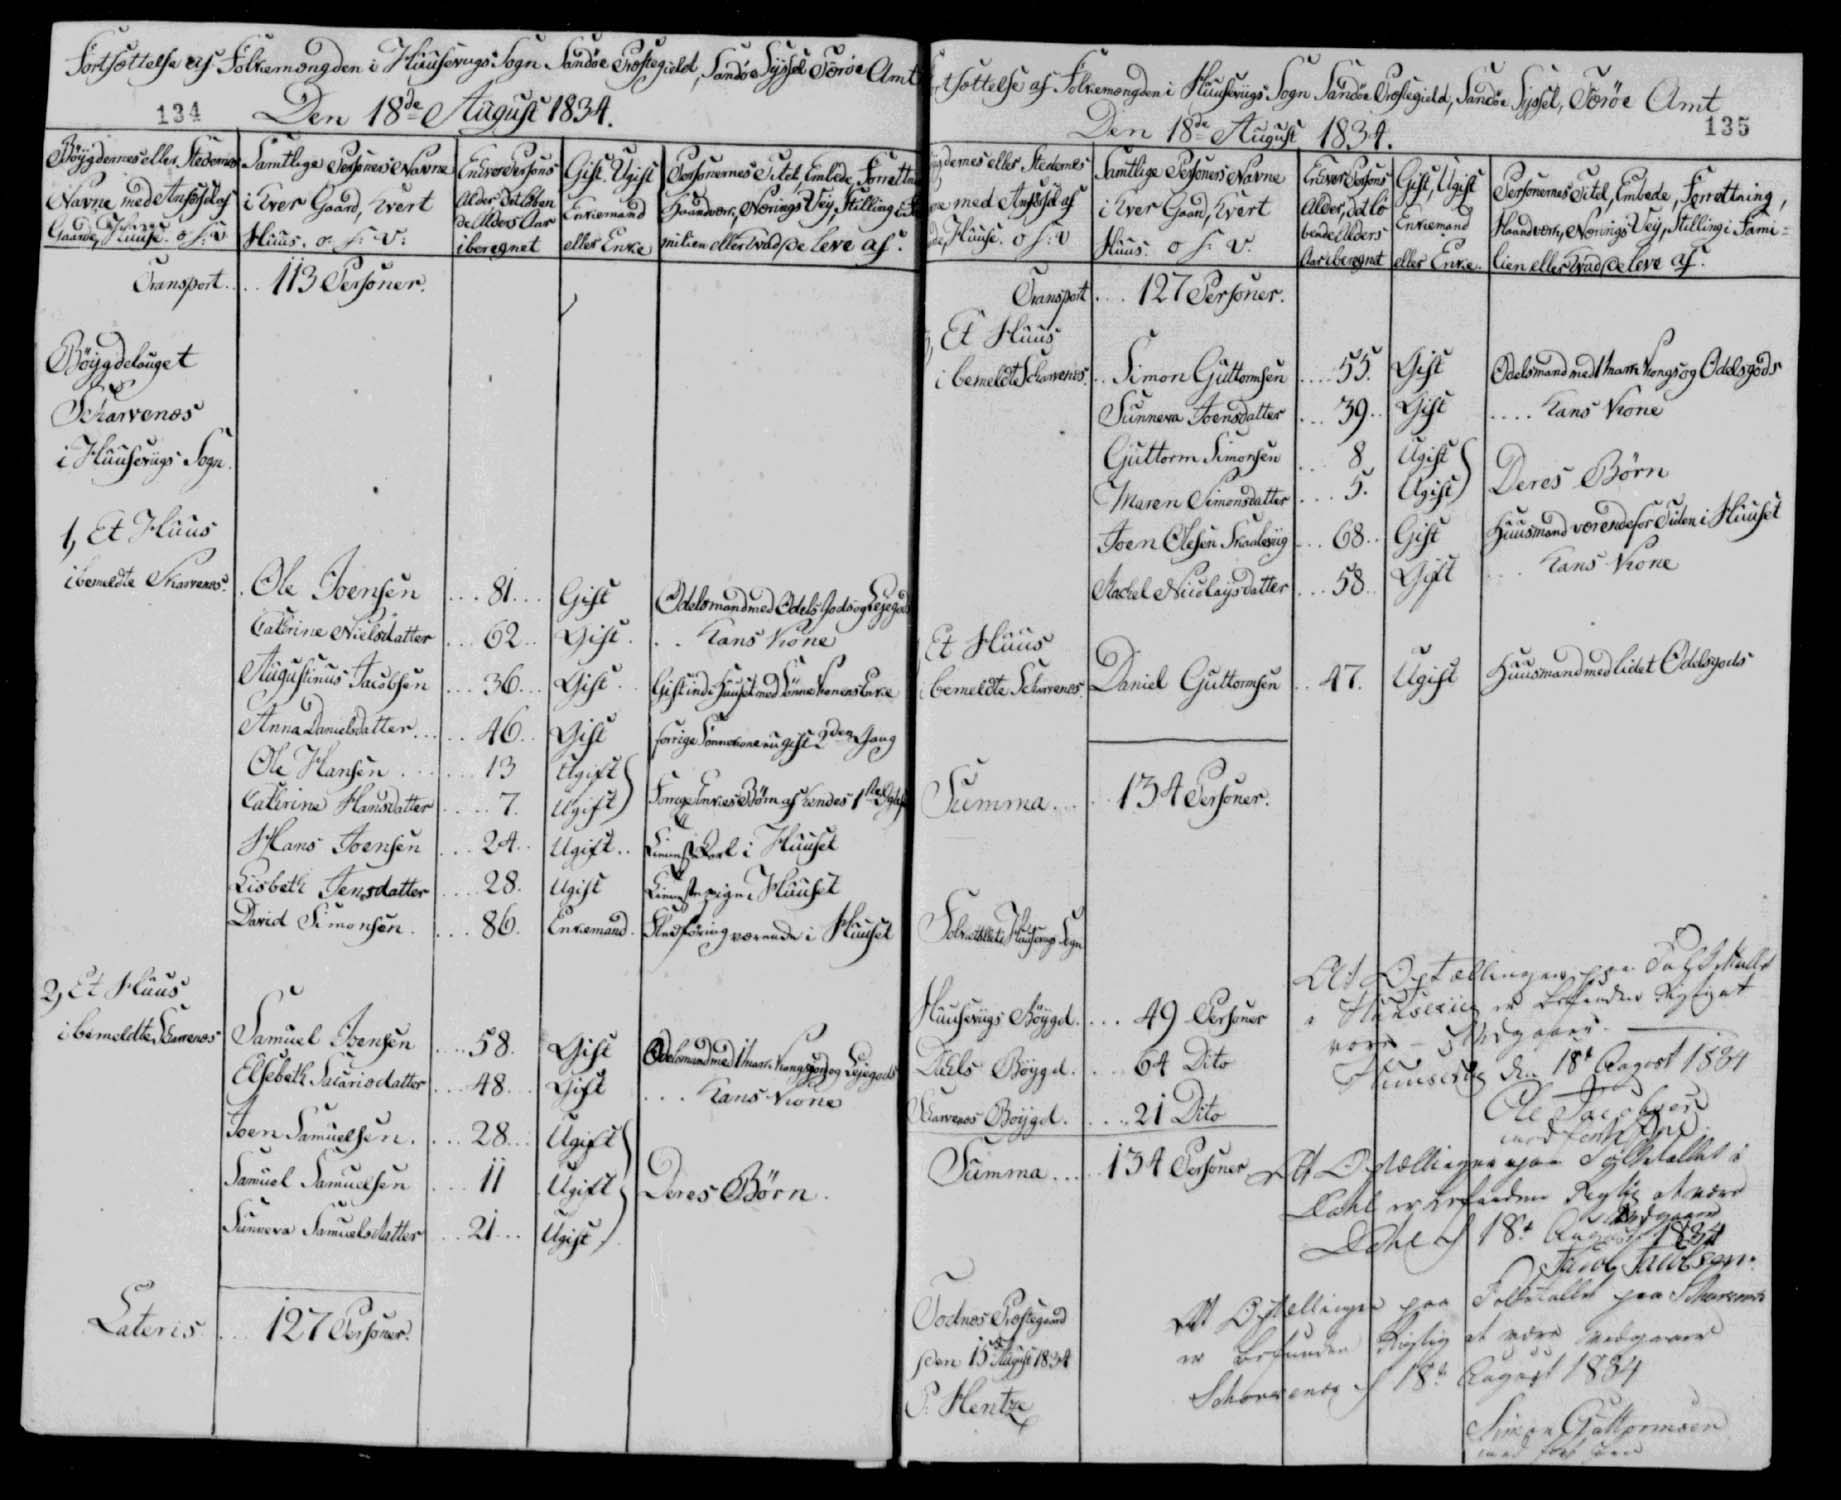 Fortsættelse af Folkemængden i Huusevugs Sogn Sandøe Præstegield, Sandøe Syssel Færøe Amt
134
Den 18de August 1834.
Böygdernes eller Stedernes Navne med Anførsel af Gaarde, Huuse. o: s: v:
Samtlige Personers Navne i hver Gaard, hvert Huus. o: s: v:
Enhver Persons Alder, det løbende Alders Aar iberegnet
Gift. Ugift Enkemand eller Enke
Personernes Titel, Embede, Forretning Haandværk, Nærings Vey, Stilling i Familien eller hvad de leve af.
Transport . . . 113 Personer.
Böygdelauget
Scharvenæs
i Huusevigs Sogn.
1, Et Huus
i bemeldte Skarvenæs. Ole Joensen ... 81 ... Gift Odelsmand med Odels Gods og Lejegods
Cathrine Nielsdatter ... 62 .. Gift . . . hans Kone
Augustinus Jacobsen ... 36 ... Gift Gift ind i Huuset med Sönne Konens Enke
Anna Danielsdatter ... 46 .. Gift forrige Sönnekone nu gift 2den Gang
Ole Hansen ... 13 Ugift
Cathrine Hansdatter .... 7. Ugift Forrige Enkes Börn af hendes 1ste Ægteskab
Hans Joensen ... 24 .. Ugift .. Tienestekarl i Huuset
Lisbeth Jensdatter ... 28. Ugift Tienestepige i Huuset
David Simonsen. ... 86. Enkemand. Fledføring værende i Huuset
2, Et Huus
i bemeldte Skarvenæs Samuel Joensen .... 58. Gift Odelsmand med 1 mark Kongsgods og Lejegods
Elsebeth Sacarisdatter ... 48 ... Gift . . . hans Kone
Joen Samuelsen. ... 28 ... Ugift
Samuel Samuelsen ... 11 Ugift Deres Börn.
Sunneva Samuelsdatter .. 21 ... Ugift
Lateris . . . 127 Personer.
Fortsættelse af Folkemængden i Huusevigs Sogn Sandöe Præstegield, Sandöe Syssel, Færöe Amt
135
Den 18de August 1834.
Böygdernes eller Stedernes Navne med Anførsel af Gaarde, Huuse. o s: v
Samtlige Personers Navne i hver Gaard, hvert Huus. o s: v.
Enhver Persons Alder, det løbende Alders Aar iberegnet
Gift, Ugift Enkemand eller Enke.
Personernes Titel, Embede, Forretning, Haandværk, Nærings Vey, Stilling i Familien eller hvad de leve af.
Transport .... 127 Personer.
Et Huus
i bemeldte Scharvenæs. .. Simon Guttormsen .... 55. Gift Odelsmand med 1 mark Kongs og Odelsgods
Sunneva Joensdatter ... 39 .. Gift .... hans Kone
Guttorm Simonsen ... 8 Ugift
Maren Simonsdatter ... 5. Ugift Deres Börn
Joen Olesen Skaalevig ... 68 .. Gift Huusmand værende for Tiden i Huuset
Rachel Nicolaysdatter ... 58 .. Gift ... hans Kone
Et Huus
i bemeldte Scharvenæs. Daniel Guttormsen .. 47. Ugift Huusmand med lidet Odelsgods
Summa .... 134 Personer.
Folketallet i Huusevigs Sogn
Huusevigs Böygd. ... 49 Personer
Dahls Böygd. .... 64 Dito
Skarvenæs Böygd. .... 21 Dito
Summa .... 134 Personer
At Optællingen paa Folketallet
i Huusevig er befunden Rigtig at
være - Vedgaaes.
Huusevig den 18de August 1834
Ole Jacobsen
med ført Pen
At Optællingen paa Folketallet i
Dahl er befunden Rigtig at være
Vedgaaes
Dahl d 18de August 1834
Jacob Jacobsen.
At Optællingen paa Folketallet paa Scharvenæs
er befunden Rigtig at være vedgaaes
Scharvenæs d 18de August 1834
Simon Guttormsen
med ført Pen
Todnæs Præstegaard
den 15 August 1834
P. Hentze